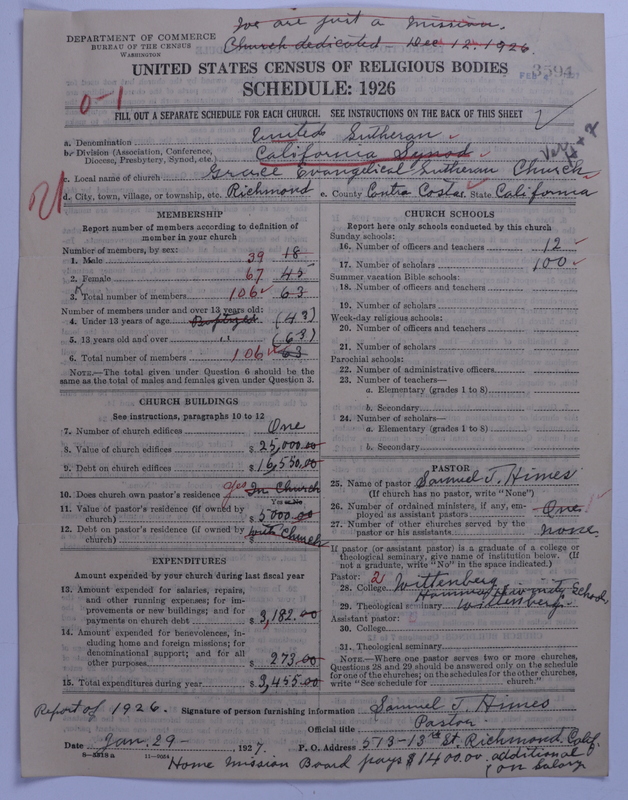 We are just a Mission.
Church dedicated - Dec 12. 1926.
DEPARTMENT OF COMMERCE
BUREAU OF THE CENSUS
WASHINGTON
UNITED STATES CENSUS OF RELIGIOUS BODIES
3594
SCHEDULE: 1926
0-1
FILL OUT A SEPARATE SCHEDULE FOR EACH CHURCH. SEE INSTRUCTIONS ON THE BACK OF THIS SHEET
a. Denomination United Lutheran
b. Division (Association, Conference, Diocese, Presbytery, Synod, etc.) California Synod
c. Local name of church Grace Evangelical Lutheran Church
d. City, town, village, or township, etc. Richmond e. County Contra Costa f. State California
MEMBERSHIP
Report number of members according to definition of member in your church
Number of members, by sex:
1. Male 39 18
2. Female 67 45
3. Total number of members 106 63
Number of members under and over 13 years old:
4. Under 13 years of age Baptized (43)
5. 13 years old and over " (63)
6. Total number of members 106 63
NOTE.—The total given under Question 6 should be the same as the total of males and females given under Question 3.
CHURCH BUILDINGS
See instructions, paragraphs 10 to 12
7. Number of church edifices One
8. Value of church edifices $ 25,000.00
9. Debt on church edifices $ 16,550.00
10. Does church own pastor's residence? Yes In Church
Yes or No
11. Value of pastor's residence (if owned by church) $ 5000.00
12. Debt on pastor's residence (if owned by church) $ with Church
EXPENDITURES
Amount expended by your church during last fiscal year
13. Amount expended for salaries, repairs, and other running expenses; for improvements or new buildings; and for payments on church debt $ 3,182.00
14. Amount expended for benevolences, including home and foreign missions; for denominational support; and for all other purposes $ 273.00
15. Total expenditures during year $ 3,455.00
CHURCH SCHOOLS
Report here only schools conducted by this church
Sunday schools:
16. Number of officers and teachers 12
17. Number of scholars 100
Summer vacation Bible schools:
18. Number of officers and teachers
19. Number of scholars
Week-day religious schools:
20. Number of officers and teachers
21. Number of scholars
Parochial schools:
22. Number of administrative officers
23. Number of teachers—
a. Elementary (grades 1 to 8)
b. Secondary
24. Number of scholars—
a. Elementary (grades 1 to 8)
b. Secondary
PASTOR
25. Name of pastor Samuel J. Himes
(If church has no pastor, write "None")
26. Number of ordained ministers, if any, employed as assistant pastors One
27. Number of other churches served by the pastor or his assistants none
If pastor (or assistant pastor) is a graduate of a college or theological seminary, give name of institution below. (If not a graduate, write "No" in the space indicated.)
Pastor: 2
28. College Wittenberg
Hamma Divinity School
29. Theological seminary Wittenberg
Assistant pastor:
30. College
31. Theological seminary
NOTE.—Where one pastor serves two or more churches, Questions 28 and 29 should be answered only on the schedule for one of the churches; on the schedules for the other churches, write "See schedule for church."
Report of 1926.
Signature of person furnishing information Samuel J. Himes
Official title Pastor
Date Jan. 29 - , 1927. P. O. Address 573-13th St. Richmond, Calif.
Home Mission Board pays $1400.00 additional on salary